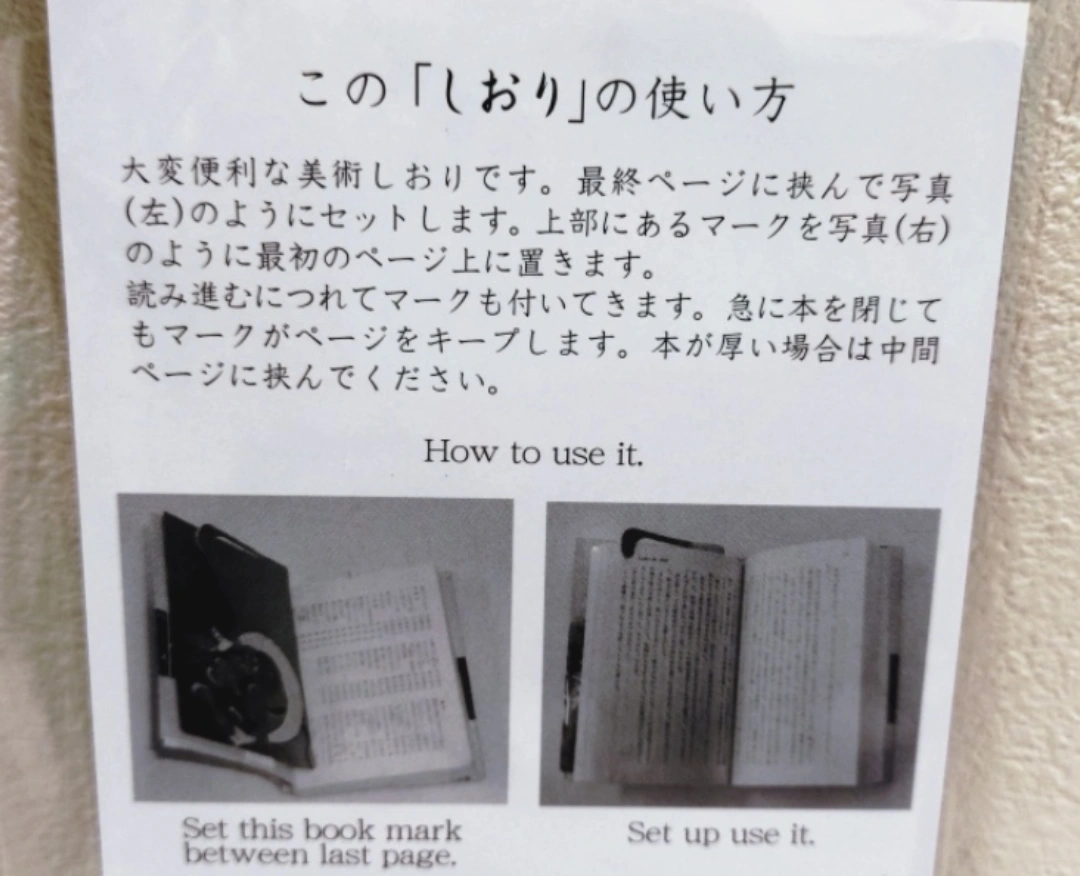 この「しおり」の使い方
大変便利な美術しおりです。最終ページに挟んで写真
(左)のようにセットします。上部にあるマークを写真(右)
のように最初のページ上に置きます。
読み進むにつれてマークも付いてきます。急に本を閉じて
もマークがページをキープします。本が厚い場合は中間
ページに挟んでください。
How to use it.
Set this book mark
between last page.
Set up use it.